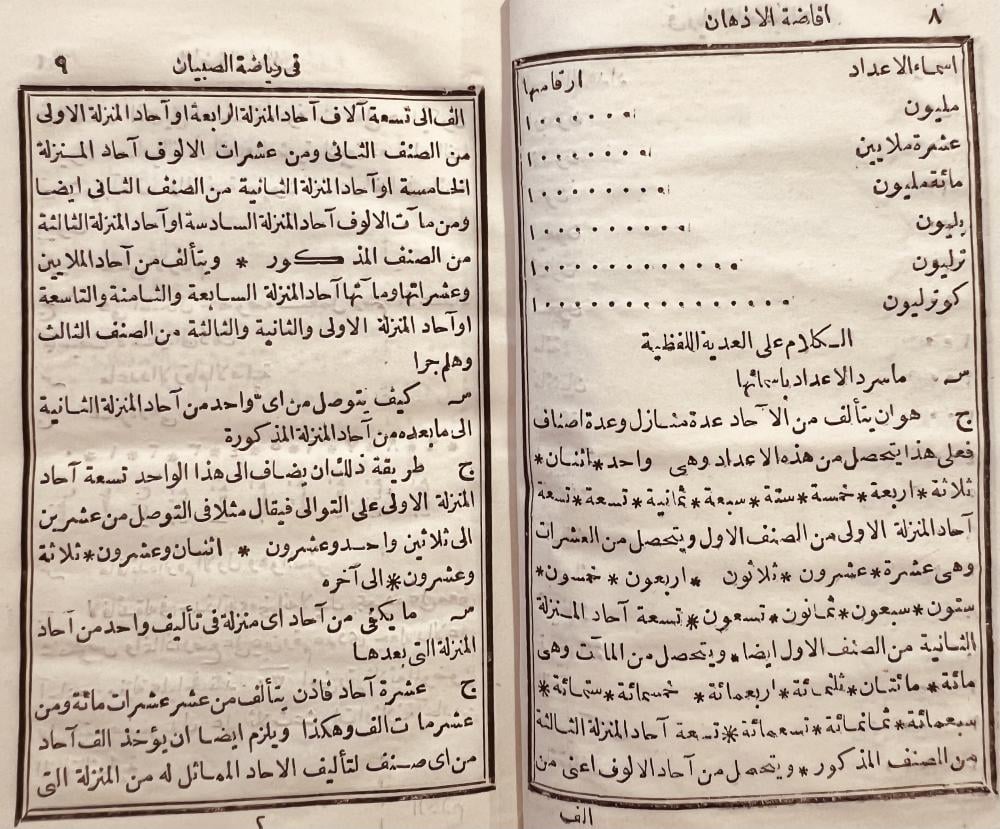 ٨
افاضة الاذهان
اسماء الاعداد ارقامها
مليون ١٠٠٠٠٠٠
عشرة ملايين ١٠٠٠٠٠٠٠
مائة مليون ١٠٠٠٠٠٠٠٠
بليون ١٠٠٠٠٠٠٠٠٠
ترليون ١٠٠٠٠٠٠٠٠٠٠٠٠
كوترليون ١٠٠٠٠٠٠٠٠٠٠٠٠٠٠٠
الكلام على العدية اللفظية
س ما سرد الاعداد باسمائها
ج هو ان يتألف من الآحاد عدة منازل وعدة اصناف
فعلى هذا يتحصل من هذه الاعداد وهى واحد * اثنان *
ثلاثة * اربعة * خمسة * ستة * سبعة * ثمانية * تسعة * تسعة
آحاد المنزلة الاولى من الصنف الاول ويتحصل من العشرات
وهى عشرة * عشرون * ثلاثون * اربعون * خمسون *
ستون * سبعون * ثمانون * تسعون * تسعة آحاد المنزلة
الثانية من الصنف الاول ايضا * ويتحصل من المآت وهى
مائة * مائتان * ثلثمائة * اربعمائة * خمسمائة * ستمائة *
سبعمائة * ثمانمائة * تسعمائة * تسعة آحاد المنزلة الثالثة
من الصنف المذكور * ويتحصل من آحاد الالوف اعنى من
الف
فى رياضة الصبيان
٩
الف الى تسعة آلاف آحاد المنزلة الرابعة او آحاد المنزلة الاولى
من الصنف الثانى ومن عشرات الالوف آحاد المنزلة
الخامسة او آحاد المنزلة الثانية من الصنف الثانى ايضا
ومن مآت الالوف آحاد المنزلة السادسة او آحاد المنزلة الثالثة
من الصنف المذكور * ويتألف من آحاد الملايين
وعشراتها ومآتها آحاد المنزلة السابعة والثامنة والتاسعة
او آحاد المنزلة الاولى والثانية والثالثة من الصنف الثالث
وهلم جرا
س كيف يتوصل من اى واحد من آحاد المنزلة الثانية
الى ما بعده من آحاد المنزلة المذكورة
ج طريقة ذلك ان يضاف الى هذا الواحد تسعة آحاد
المنزلة الاولى على التوالى فيقال مثلا فى التوصل من عشرين
الى ثلاثين واحد وعشرون * اثنان وعشرون * ثلاثة
وعشرون * الى آخره
س ما يكفى من آحاد اى منزلة فى تأليف واحد من آحاد
المنزلة التى بعدها
ج عشرة آحاد فاذن يتألف من عشر عشرات مائة ومن
عشر مآت الف وهكذا ويلزم ايضا ان يؤخذ الف آحاد
من اى صنف لتأليف الاحاد المماثل له من المنزلة التى
٢